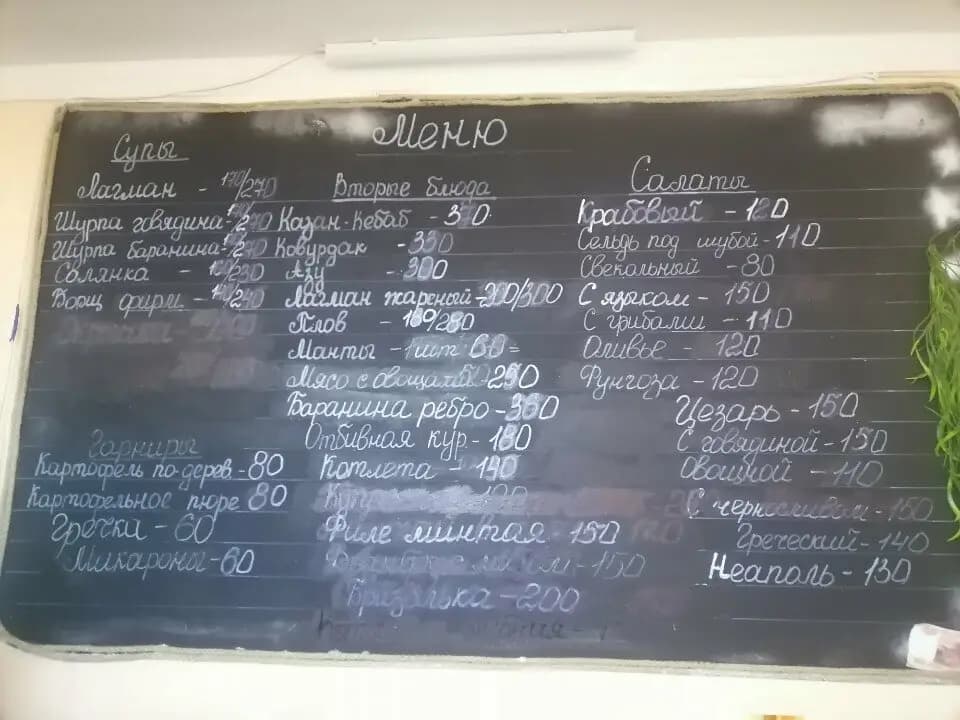 Меню
Супы
Лагман - 170/270
Шурпа говядина-
Шурпа баранина-
Солянка -
Борщ фирм -
Гарниры
Картофель по дерев.-80
Картофельное пюре 80
Гречка - 60
Макароны-60
Вторые блюда
Казан-Кебаб - 370
Ковурдак - 330
Азу - 300
Лагман жареный-200/300
Плов - 180/280
Манты - 1 шт 60=
Мясо с овощами 250
Баранина ребро - 360
Отбивная кур - 180
Котлета - 140
Филе минтая - 150
- 150
Бризолька - 200
Салаты
Крабовый - 120
Сельдь под шубой-110
Свекольный - 80
С языком - 150
С грибами - 110
Оливье - 120
Фунгоза - 120
Цезарь - 150
С говядиной - 150
Овощной - 110
С черносливом - 150
Греческий - 140
Неаполь - 130